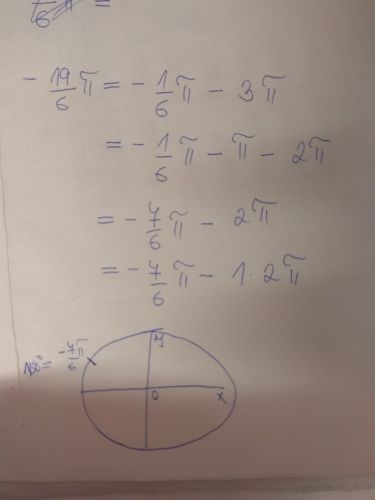 6 =
- 19/6 π = - 1/6 π - 3π
= - 1/6 π - π - 2π
= - 7/6 π - 2π
= - 7/6 π - 1·2π
y
150° = - 7/6 π
0 x